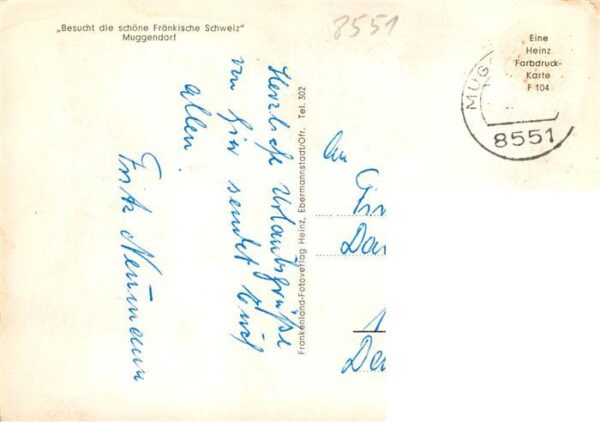 „Besucht die schöne Fränkische Schweiz"
Muggendorf
8551
Eine
Heinz
Farbdruck-
Karte
F 104
MUG
8551
Herzliche Urlaubsgrüße
von hier sendet Euch
allen
Fritz Neumann
Frankenland-Fotoverlag Heinz, Ebermannstadt/Ofr. Tel. 302
An